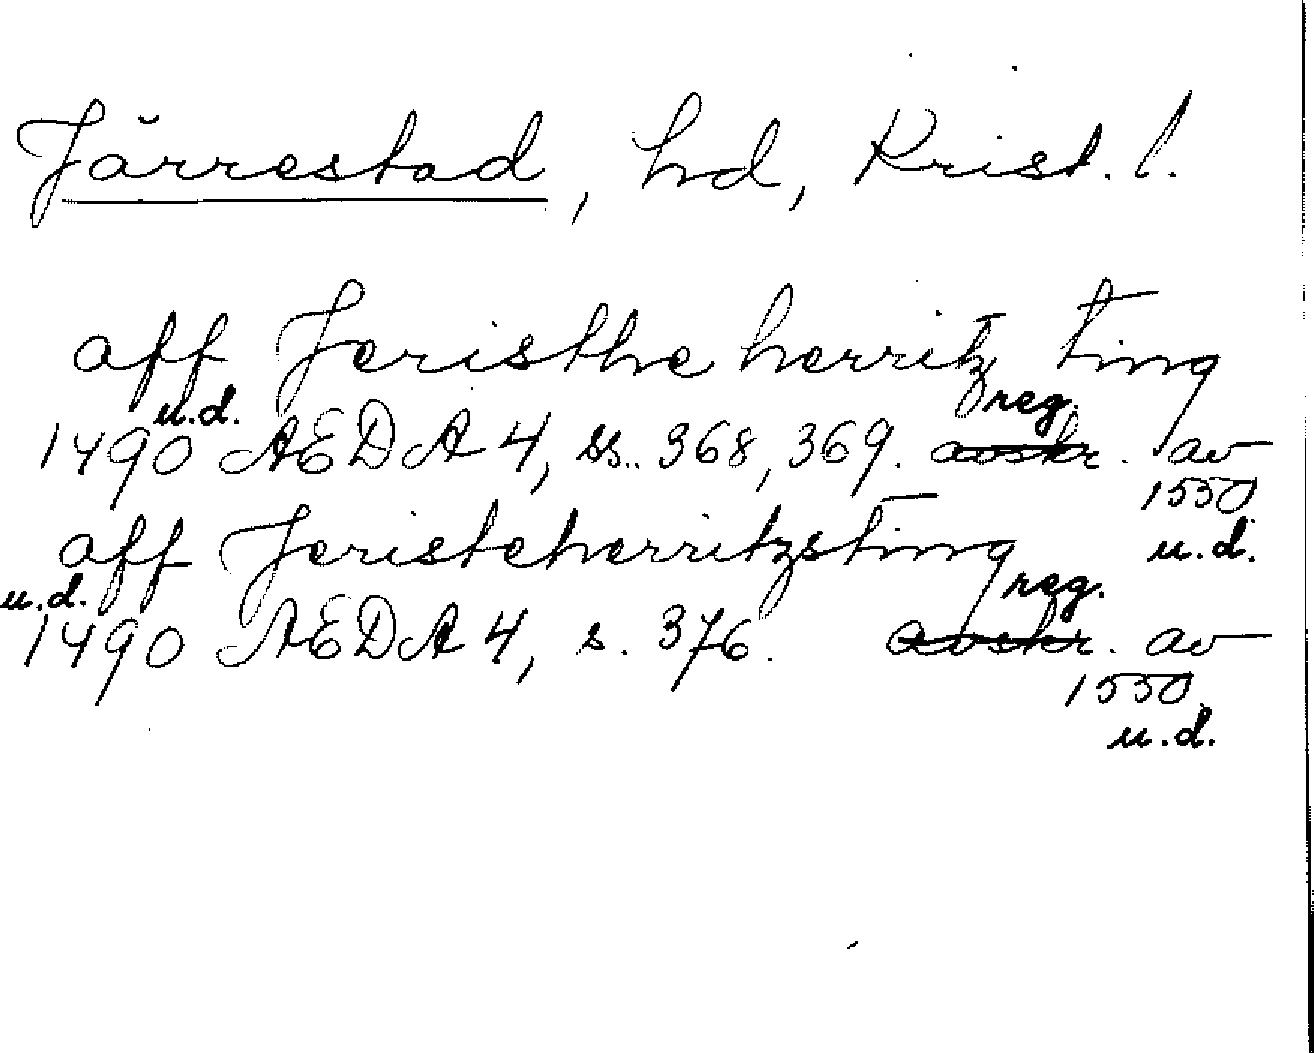 Järrestad, hd, Krist. l.
aff Jeristhe herritz ting
1490 u.d. AEDA 4, ss. 368, 369. avskr. reg. av
1550
u.d.
aff Jeristeherritzsting
1490 u.d. AEDA 4, s. 376. avskr. reg. av
1550
u.d.